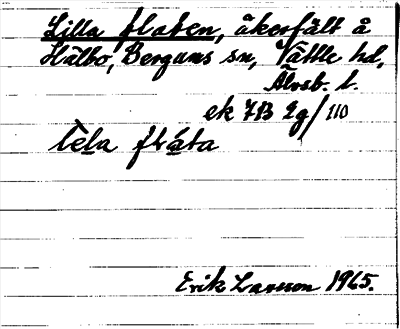 Lilla flaten, åkerfält å
Hälbo, Bergums sn, Vättle hd,
Älvsb. l.
ek 7B 2g/110
lèla flata
Erik Larsson 1965.